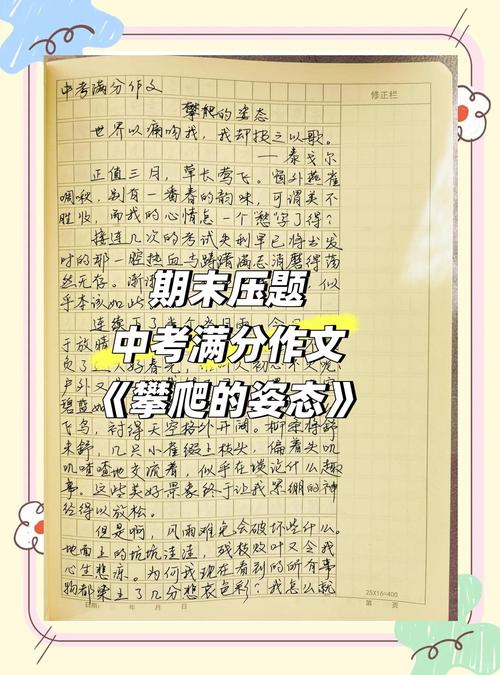 中考满分作文
修正栏
攀爬的姿态
世界以痛吻我，我却报之以歌。
——泰戈尔
正值三月，草长莺飞。窗外燕雀
啁啾，别有一番春的韵味，可谓美不
胜收，而我的心情怎一个愁字了得？
接连几次的考试失利早已将出发
时的那一腔热血与踌躇满志消磨得荡
然无存。渐
似
乎本该如此
期末压题
连续下了
于放晴
中考满分作文
负了
《攀爬的姿态》
户外又
碧蓝如
飞鸟，衬得天空格外开阔。柳梁将舒
未舒，几只小雀缀上枝头，偏着头叽
叽喳喳地交流着，似乎在谈论什么趣
事。这些美好景象终于让我累绷的神
经得以放松。
但是啊，风雨难免会破坏些什么。
地面上的坑坑洼洼，残枝败叶又令我
心生悲凉。为何我现在看到的所有事
物都染上了几分悲哀色彩？我怎么就
日期： 年 月 日
25X16=400
第 页